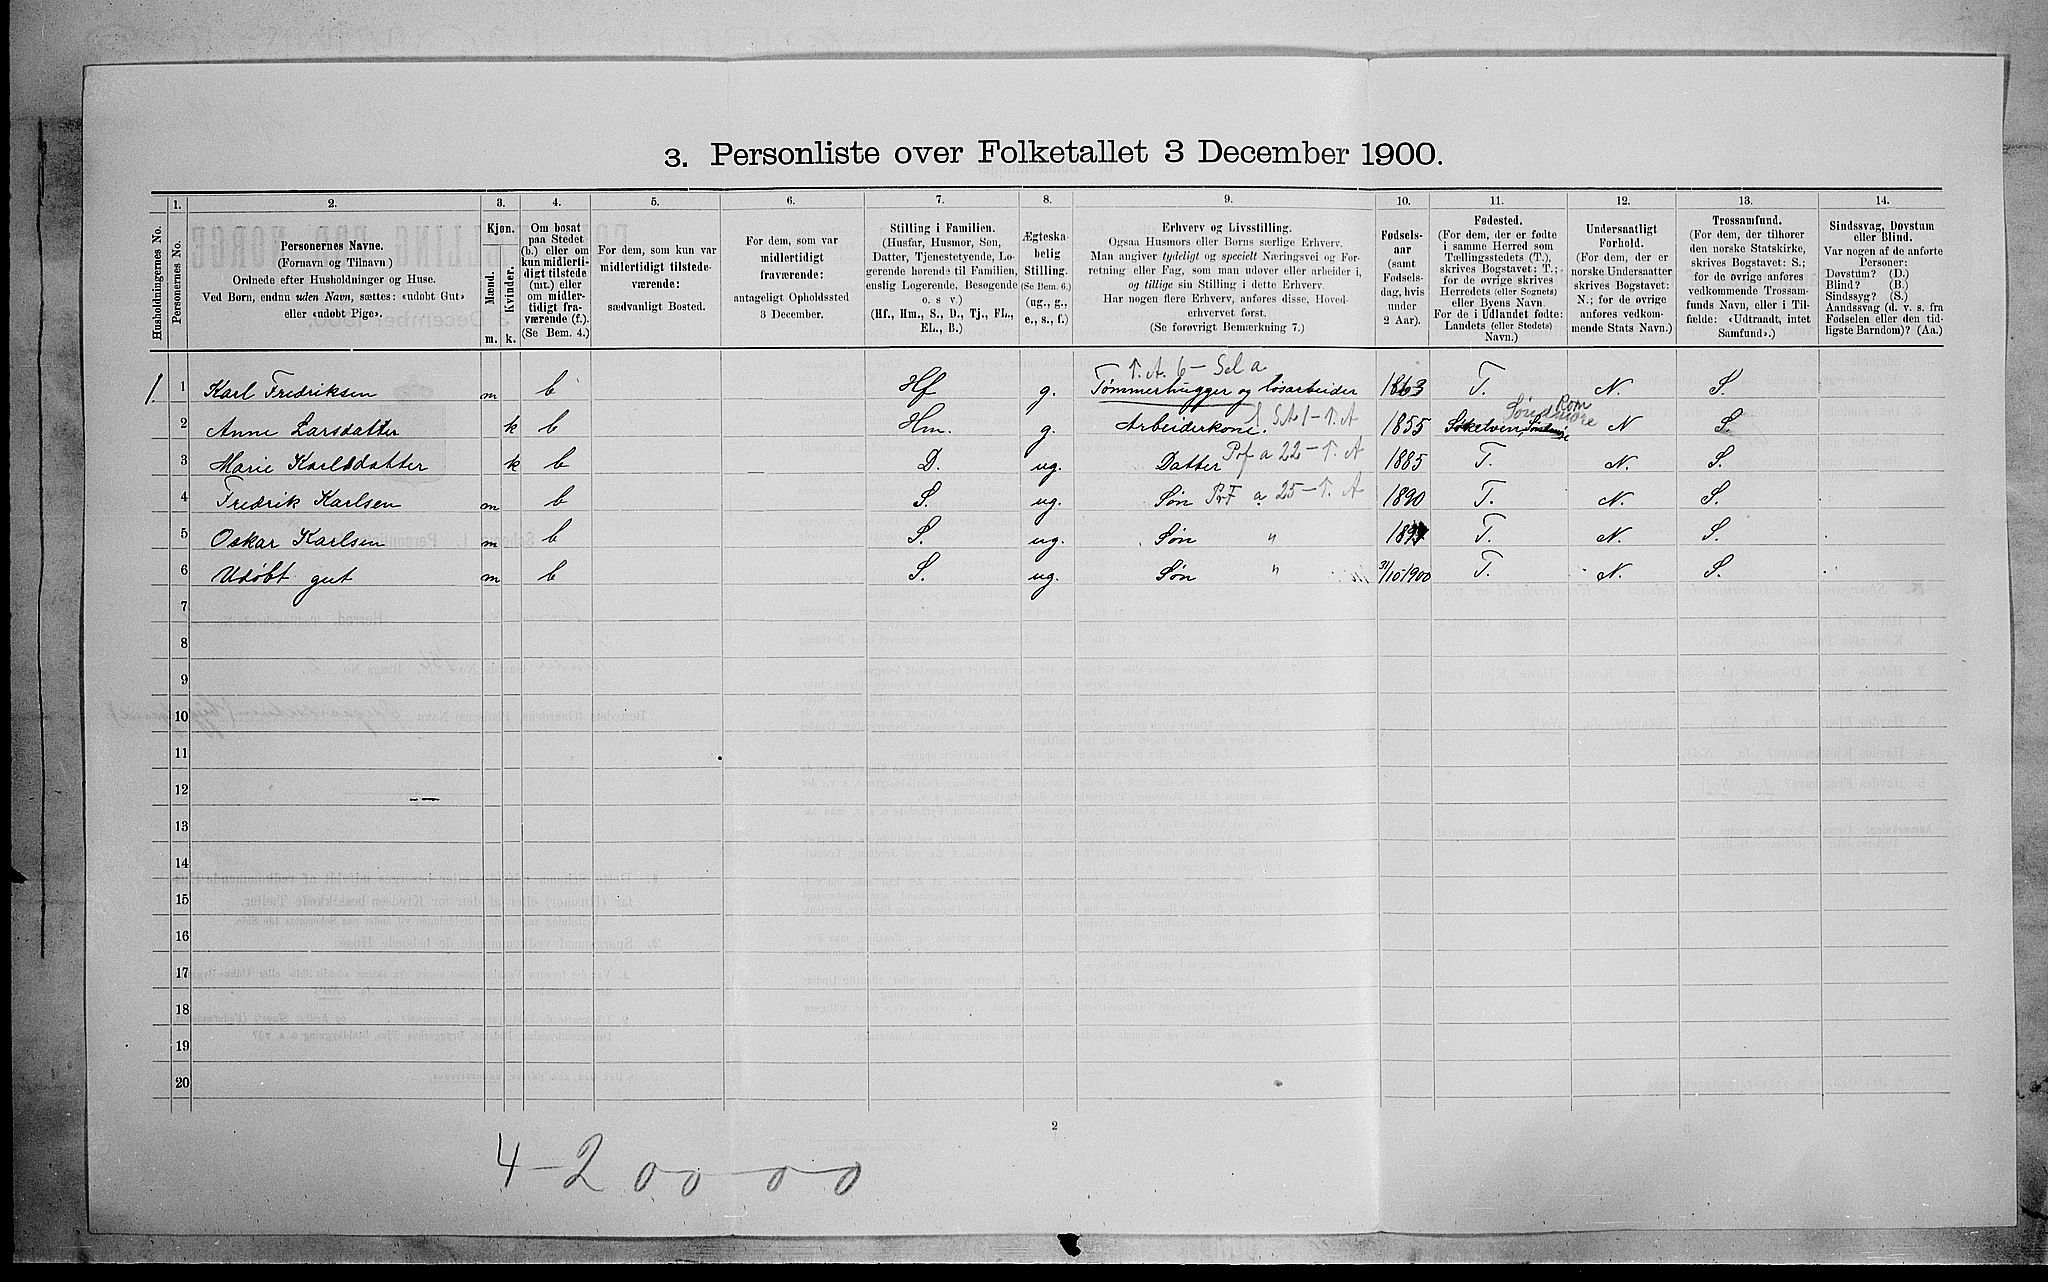 3. Personliste over Folketallet 3 December 1900.
1. 2. 3. 4. 5. 6. 7. 8. 9. 10. 11. 12. 13. 14.
Husholdningernes No.
Personernes No.
Personernes Navne.
(Fornavn og Tilnavn)
Ordnede efter Husholdninger og Huse.
Ved Børn, endnu uden Navn, sættes: «udøbt Gut»
eller «udøbt Pige».
Kjøn.
Mænd.
Kvinder.
m. k.
Om bosat
paa Stedet
(b.) eller om
kun midlerti-
digt tilstede
(mt.) eller
om midler-
tidigt fra-
værende (f.).
(Se Bem. 4.)
For dem, som kun var
midlertidigt tilstede-
værende:
sædvanligt Bosted.
For dem, som var
midlertidigt
fraværende:
antageligt Opholdssted
3 December.
Stilling i Familien.
(Husfar, Husmor, Søn,
Datter, Tjenestetyende, Lo-
gerende hørende til Familien,
enslig Logerende, Besøgende
o. s v.)
(Hf., Hm., S., D., Tj., FL.,
EL., B.)
Ægteska-
belig
Stilling.
(Se Bem. 6.)
(ug., g.,
e., s., f.)
Erhverv og Livsstilling.
Ogsaa Husmors eller Børns særlige Erhverv.
Man angiver tydeligt og specielt Næringsvei og For-
retning eller Fag, som man udøver eller arbeider i,
og tillige sin Stilling i dette Erhverv.
Har nogen flere Erhverv, anføres disse, Hoved-
erhvervet først.
(Se forøvrigt Bemærkning 7.)
Fødsels-
aar
(samt
Fødsels-
dag, hvis
under
2 Aar).
Fødested.
(For dem, der er fødte
i samme Herred som
Tællingsstedets (T.),
skrives Bogstavet: T.;
for de øvrige skrives
Herredets (eller Sognets)
eller Byens Navn.
For de i Udlandet fødte:
Landets (eller Stedets)
Navn.)
Undersaatligt
Forhold.
(For dem, der er
norske Undersaatter
skrives Bogstavet:
N.; for de øvrige
anføres vedkom-
mende Stats Navn.)
Trossamfund.
(For dem, der tilhører
den norske Statskirke,
skrives Bogstavet: S.;
for de øvrige anføres
vedkommende Trossam-
funds Navn, eller i Til-
fælde: «Udtraadt, intet
Samfund».)
Sindssvag, Døvstum
eller Blind.
Var nogen af de anførte
Personer:
Døvstum? (D.)
Blind? (B.)
Sindssyg? (S.)
Aandssvag (d. v. s. fra
Fødselen eller den tid-
ligste Barndom)? (Aa.)
T. A. 6 – Sel a
1. 1 Karl Fredriksen m b Hf g. Tømmerhugger og løsarbeider 1863 T. N. S.
Rom
Søndmøre
2 Anne Larsdatter k b Hm. g. Arbeiderkone 1855 Søkelven, Søndmøre N S
3 Marie Karlsdatter k b D. ug. Datter Prf a 22 – T. A 1885 T. N. S.
4 Fredrik Karlsen m b S. ug. Søn PrF a 25 – T. A 1890 T. N. S.
5 Oskar Karlsen m b S. ug. Søn " T. N. S.
6 Udøbt gut m b S. ug. Søn " 31/10 1900 T. N. S.
7
8
9
10
11
12
13
14
15
16
17
18
19
20
2
4 – 2 00 – 0 – 0